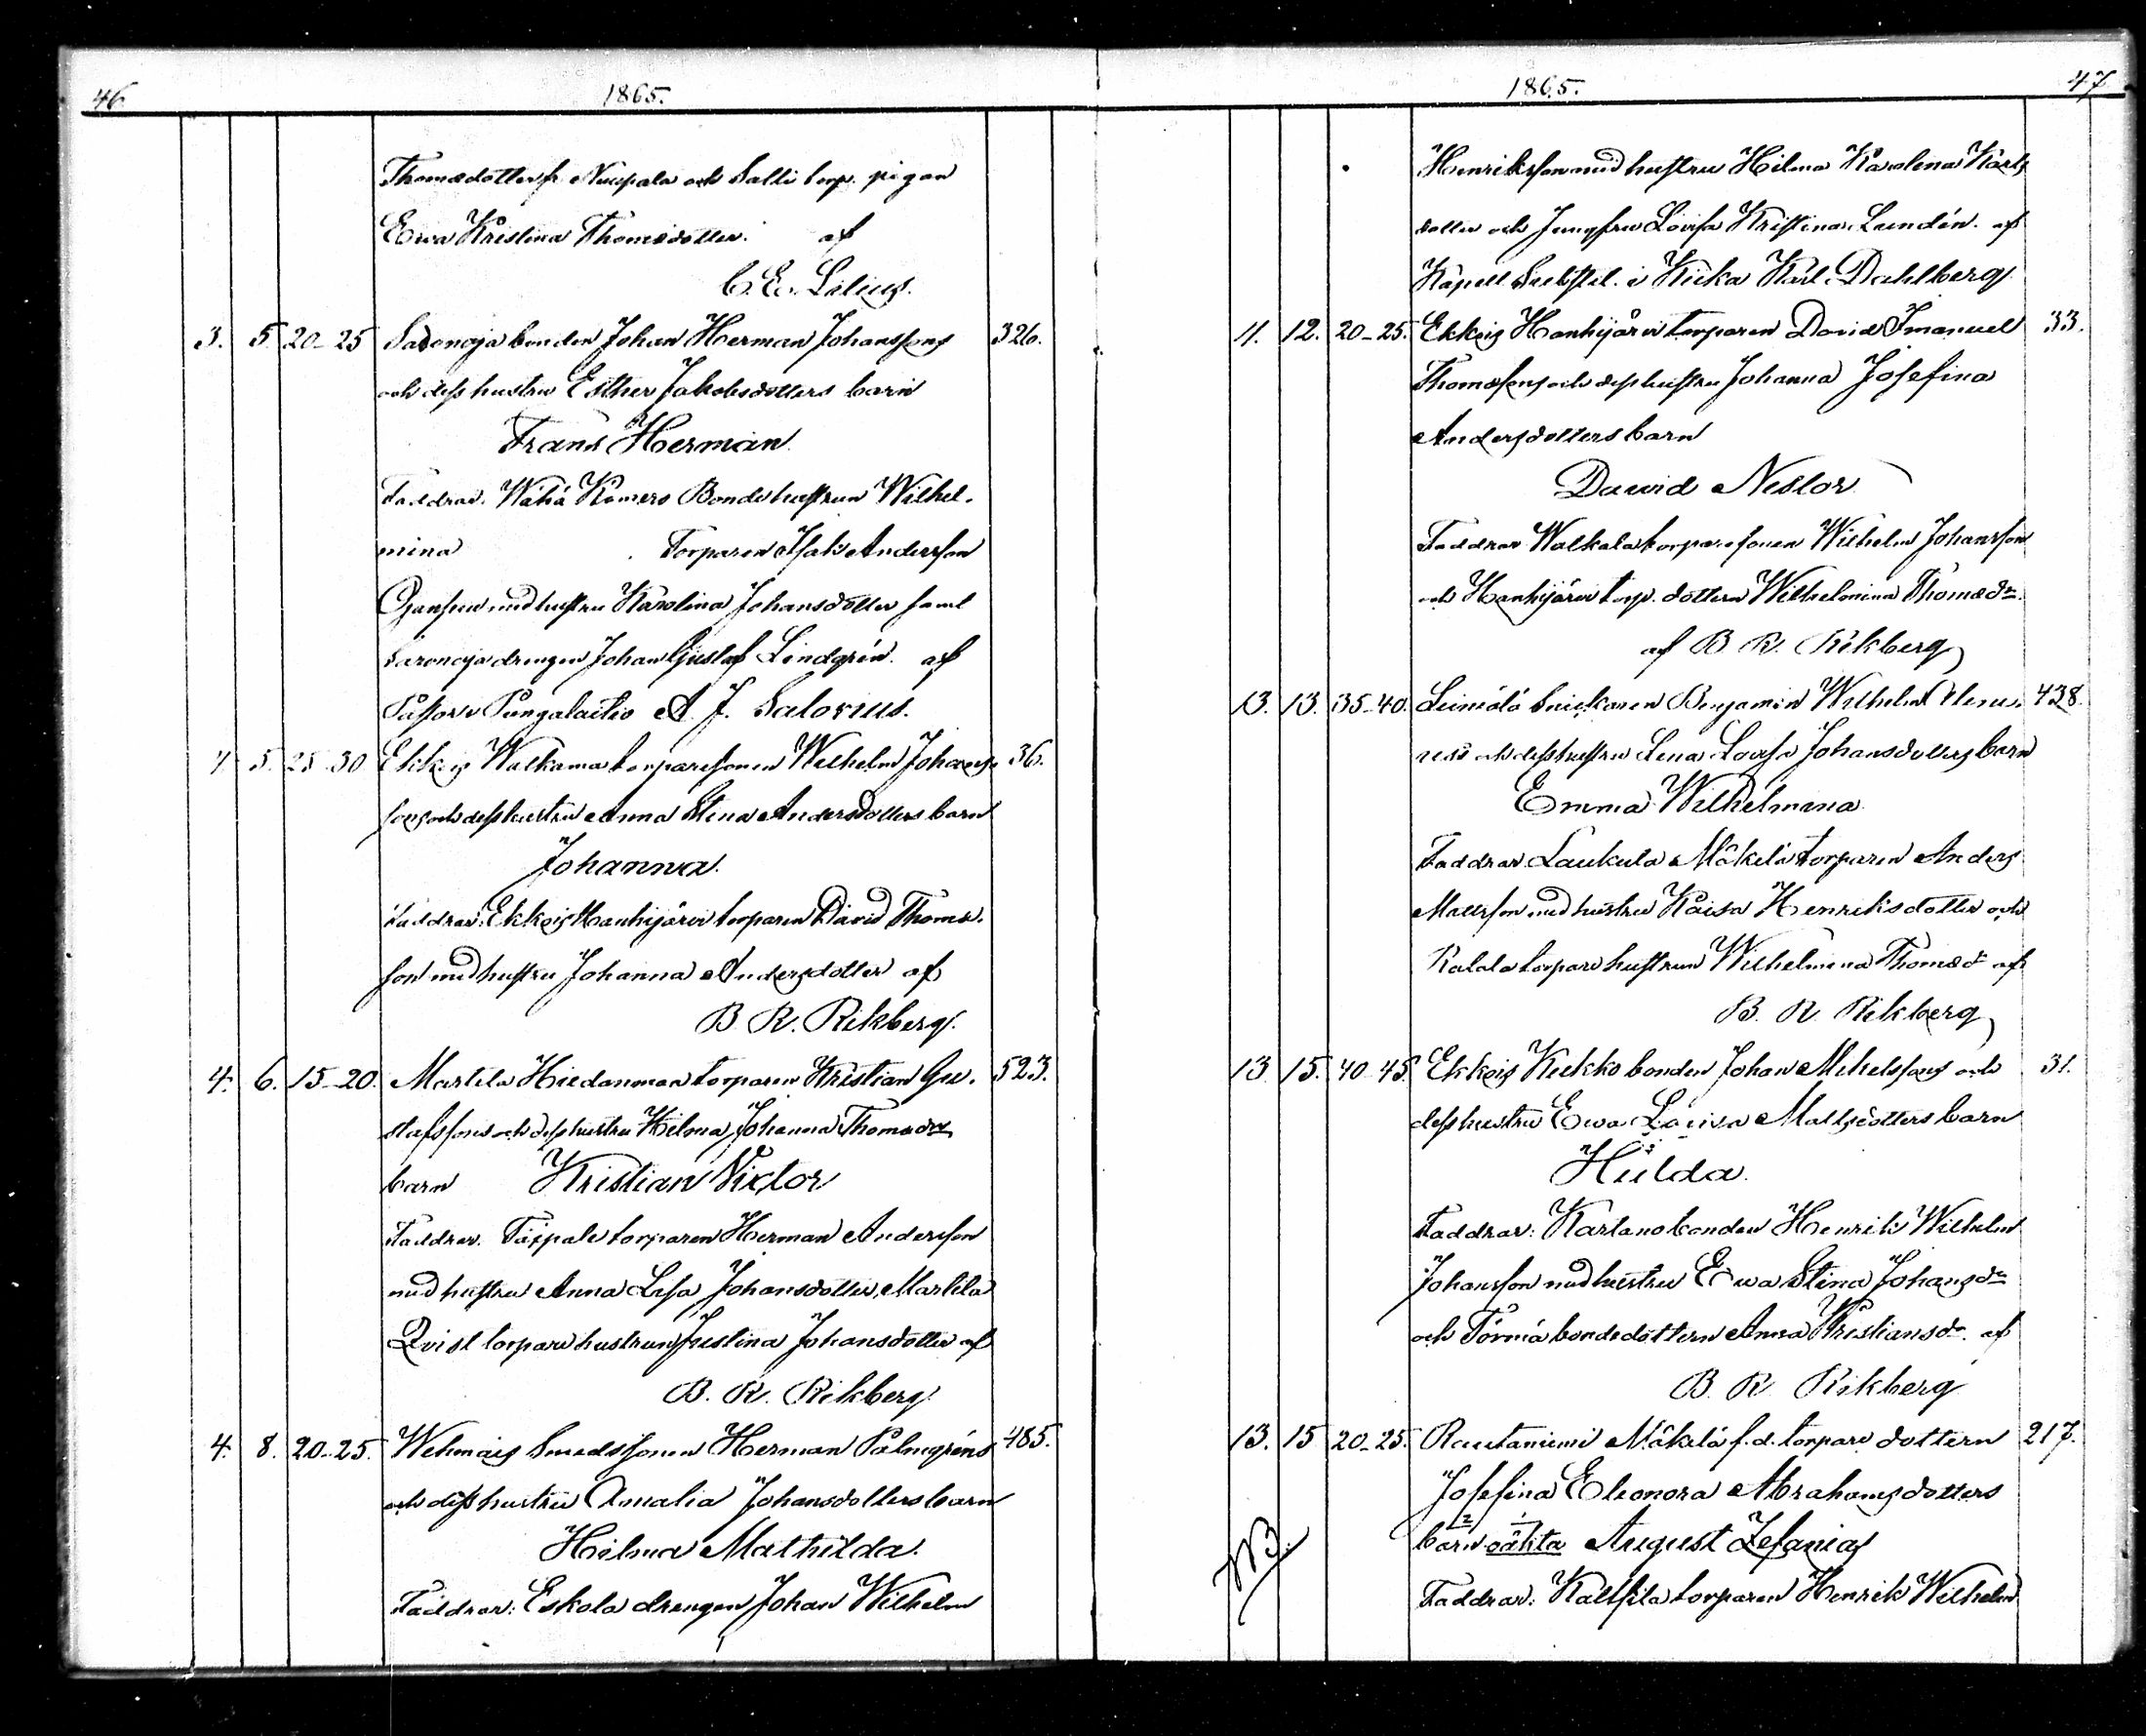 46. 1865.
Thomædotter fr Nuupala och Salli torp. pigan
Ewa Kristina Thomædotter. af
C. E. Lilius.
3. 5. 20-25 Saronoja bonden Johan Herman Johanssons 326.
och dess hustru Esther Jakobsdotters barn
Frans Herman.
Faddrar. Wähä Romero Bondehustrun Wilhel-
mina Torparen Isak Andersson
Ojansuu med hustru Karolina Johansdotter samt
Saronoja drengen Johan Gustaf Lindgrén. af
Pastorn Pungalaitio A. J. Salovius.
4 5. 25-30 Ekkois Walkama torparesonen Wilhelm Johans- 36.
sons och dess hustru Anna Stina Andersdotters barn
Johanna.
Faddrar: Ekkois Hanhijärvi torparen David Thomæ-
son med hustru Johanna Andersdotter af
B. R. Rikberg.
4. 6. 15-20. Martila Hiedanmaa torparen Kristian Gu- 523.
stafssons och dess hustru Hilma Johanna Thomædrs
barn Kristian Viktor
Faddrar. Täppale torparen Herman Andersson
med hustru Anna Lisa Johansdotter, Martila
Qvist torpare hustrun Justina Johansdotter af
B. R. Rikberg.
4. 8. 20-25. Wehmais Smedssonen Herman Palmgréns 485.
och dess hustru Amalia Johansdotters barn
Hilma Mathilda.
Faddrar: Eskola drengen Johan Wilhelm
1865. 47
Henriksson med hustru Hilma Karolina Karls
dotter och Jungfru Lovisa Kristina Lundén. af
Kapell Subst. i Kiika Karl Dahlberg.
11. 12. 20-25. Ekkois Hanhijärvi torparen David Imanuel 33.
Thomæsons och dess hustru Johanna Josefina
Andersdotters barn
David Nestor
Faddrar Walkala torparesonen Wilhelm Johansson
och Hanhijärvi torp. dottern Wilhelmina Thomædr.
af B. R. Rikberg
13. 13. 35-40. Leimälä Snickaren Benjamin Wilhelm 438.
och dess hustru Lena Lovisa Johansdotters barn
Emma Wilhelmina
Faddrar Laukula Mäkelä torparen Anders
Mattsson med hustru Kaisa Henriksdotter och
Ralala torpare hustrun Wilhelmina Thomædr af
B. R. Rikberg
13 15. 40-45. Ekkois Kiekko bonden Johan Mikelssons och 31.
dess hustru Ewa Lovisa Mattsdotters barn
Hilda.
Faddrar: Karlano bonden Henrik Wilhelm
Johansson med hustru Ewa Stina Johansdr
och Törmä bondedottern Anna Kristiansdr. af
B. R. Rikberg
13. 15 20-25. Rautaniemi Mäkelä f.d. torpare dottern 217.
Josefina Eleonora Abrahamsdotters
NB. barn oäkta August Zefanias
Faddrar: Kaltsila torparen Henrik Wilhelm